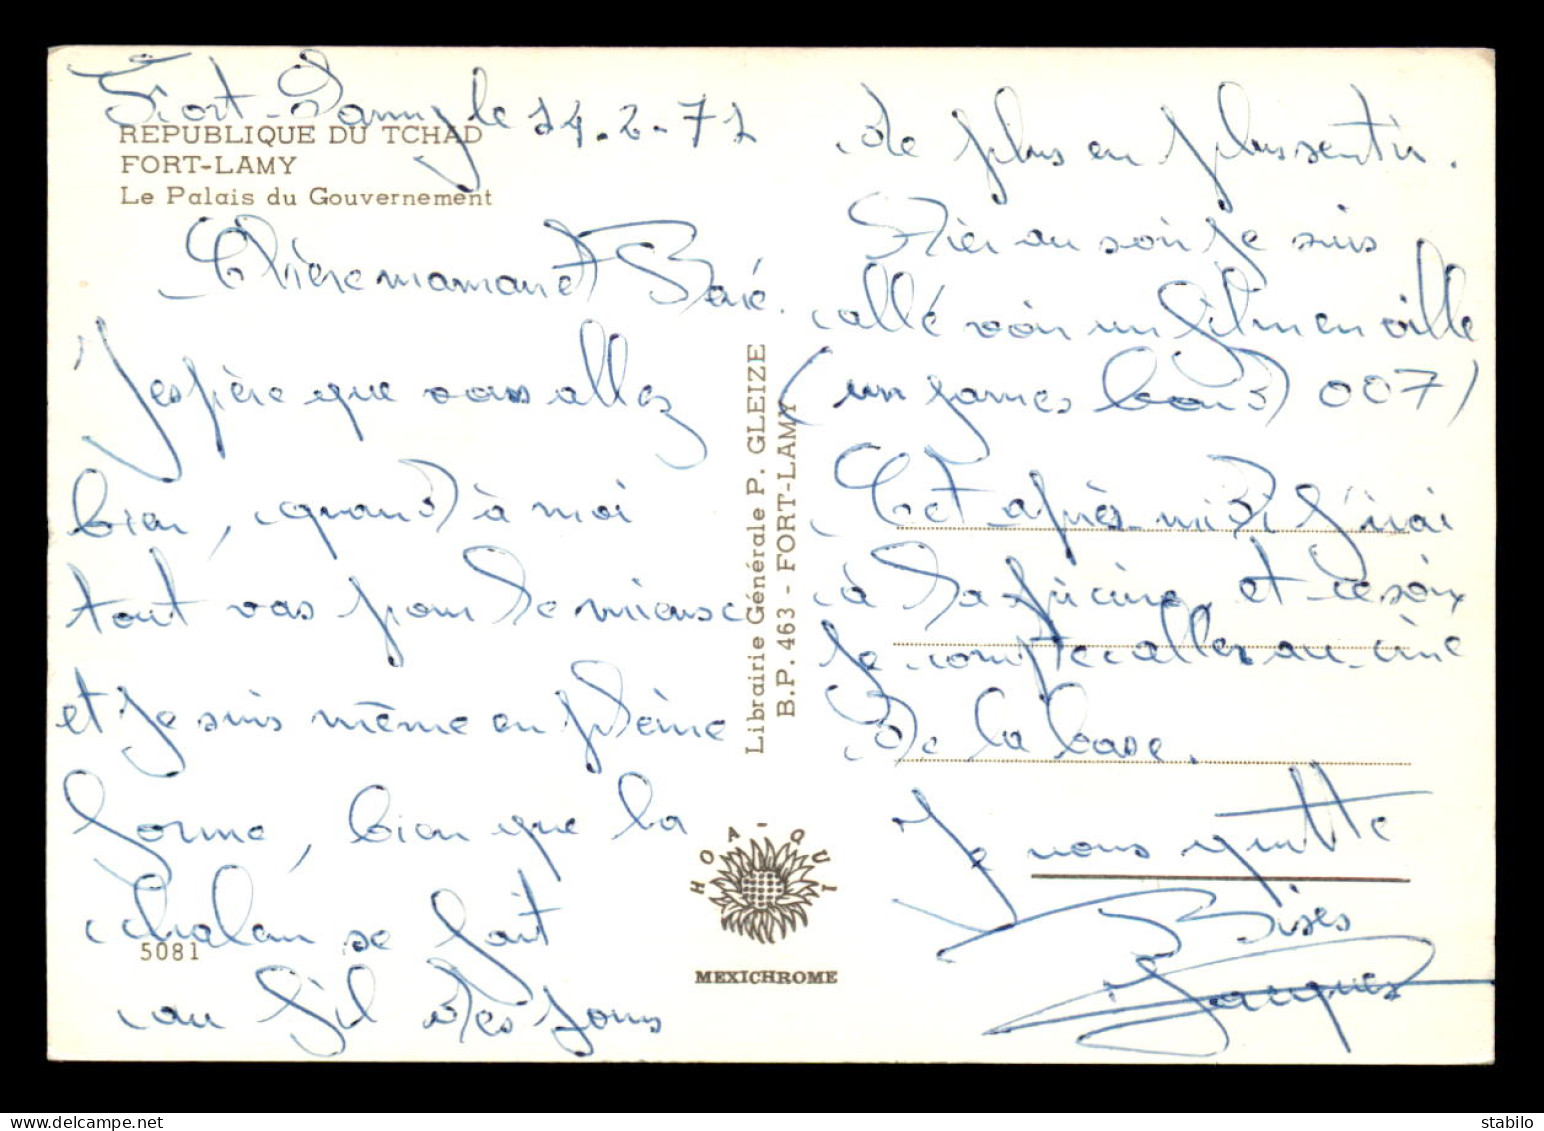 Fort-Lamy le 14.2-71
REPUBLIQUE DU TCHAD
FORT-LAMY
Le Palais du Gouvernement
Chère maman et
J'espère que vous allez
bien, quand à moi
tout vas pour le mieux
et je suis même en pleine
forme, bien que la
chaleur se fait
au fil des jours
5081
Librairie Générale P. GLEIZE
B.P. 463 - FORT-LAMY
HOA-QUI
MEXICHROME
de plus en plus sentir.
Hier au soir je suis
allé voir un film en ville
(un james bond 007)
Cet après-midi j'irai
à la piscine, et ce soir
je compte aller au ciné
de la base.
Je vous quitte
Bises
Jacques
stampsdb